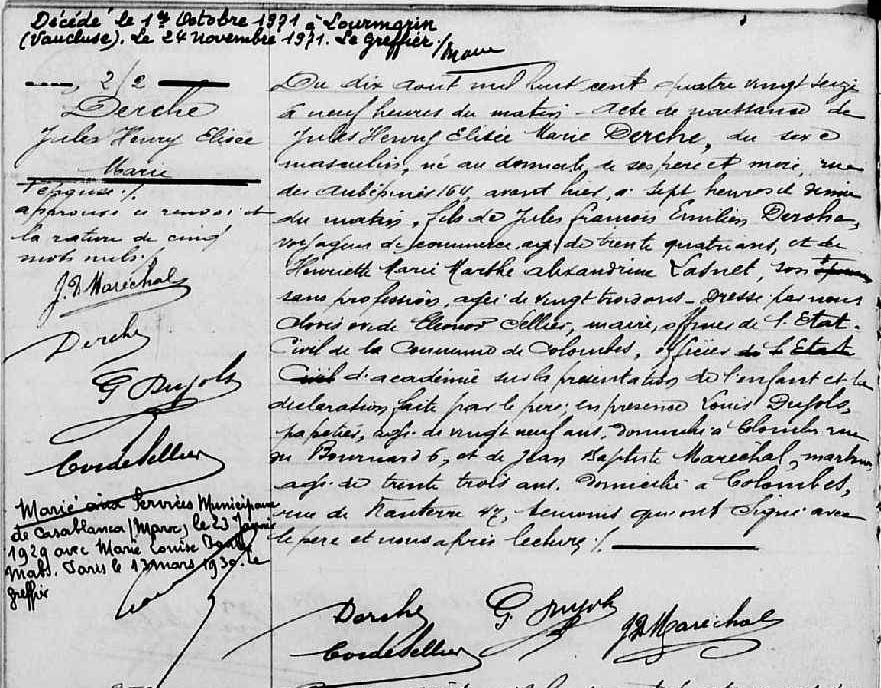 Décédé le 1er Octobre 1971 à Lourmarin
(Vaucluse). Le 24 Novembre 1971. Le greffier
212
Derche
Jules Henry Elisée
Marie
approuvé ce renvoi et
la rature de cinq
mots nuls.
J.B Maréchal
Derche
G Dujols
Marié aux Services Municipaux
de Casablanca (Maroc) le 23 Janvier
1929 avec Marie Louise
Paris le 13 mars 1930. Le
greffier
Du dix aout mil huit cent quatre vingt seize
à neuf heures du matin - Acte de naissance de
Jules Henry Elisée Marie Derche, du sexe
masculin, né au domicile de ses père et mère, rue
des Aubépines 164, avant hier, à sept heures et demie
du matin, fils de Jules François Emilien Derche,
voyageur de commerce, agé de trente quatre ans, et de
Henriette Marie Marthe Alexandrine Lasnet, son
sans profession, agée de vingt trois ans - Dressé par nous
Sellier, maire, officier de l'Etat-
Civil de la Commune de Colombes, officier de l'Etat
Civil d'académie sur la présentation de l'enfant et la
déclaration faite par le père, en présence Louis Dujols,
papetier, agé de vingt neuf ans, domicilié à Colombes rue
du Bournard 6, et de Jean Baptiste Maréchal,
agé de trente trois ans, domicilié à Colombes,
rue de Nanterre 47, témoins qui ont signé avec
le père et nous après lecture ./.
Derche
G Dujols
J B Maréchal